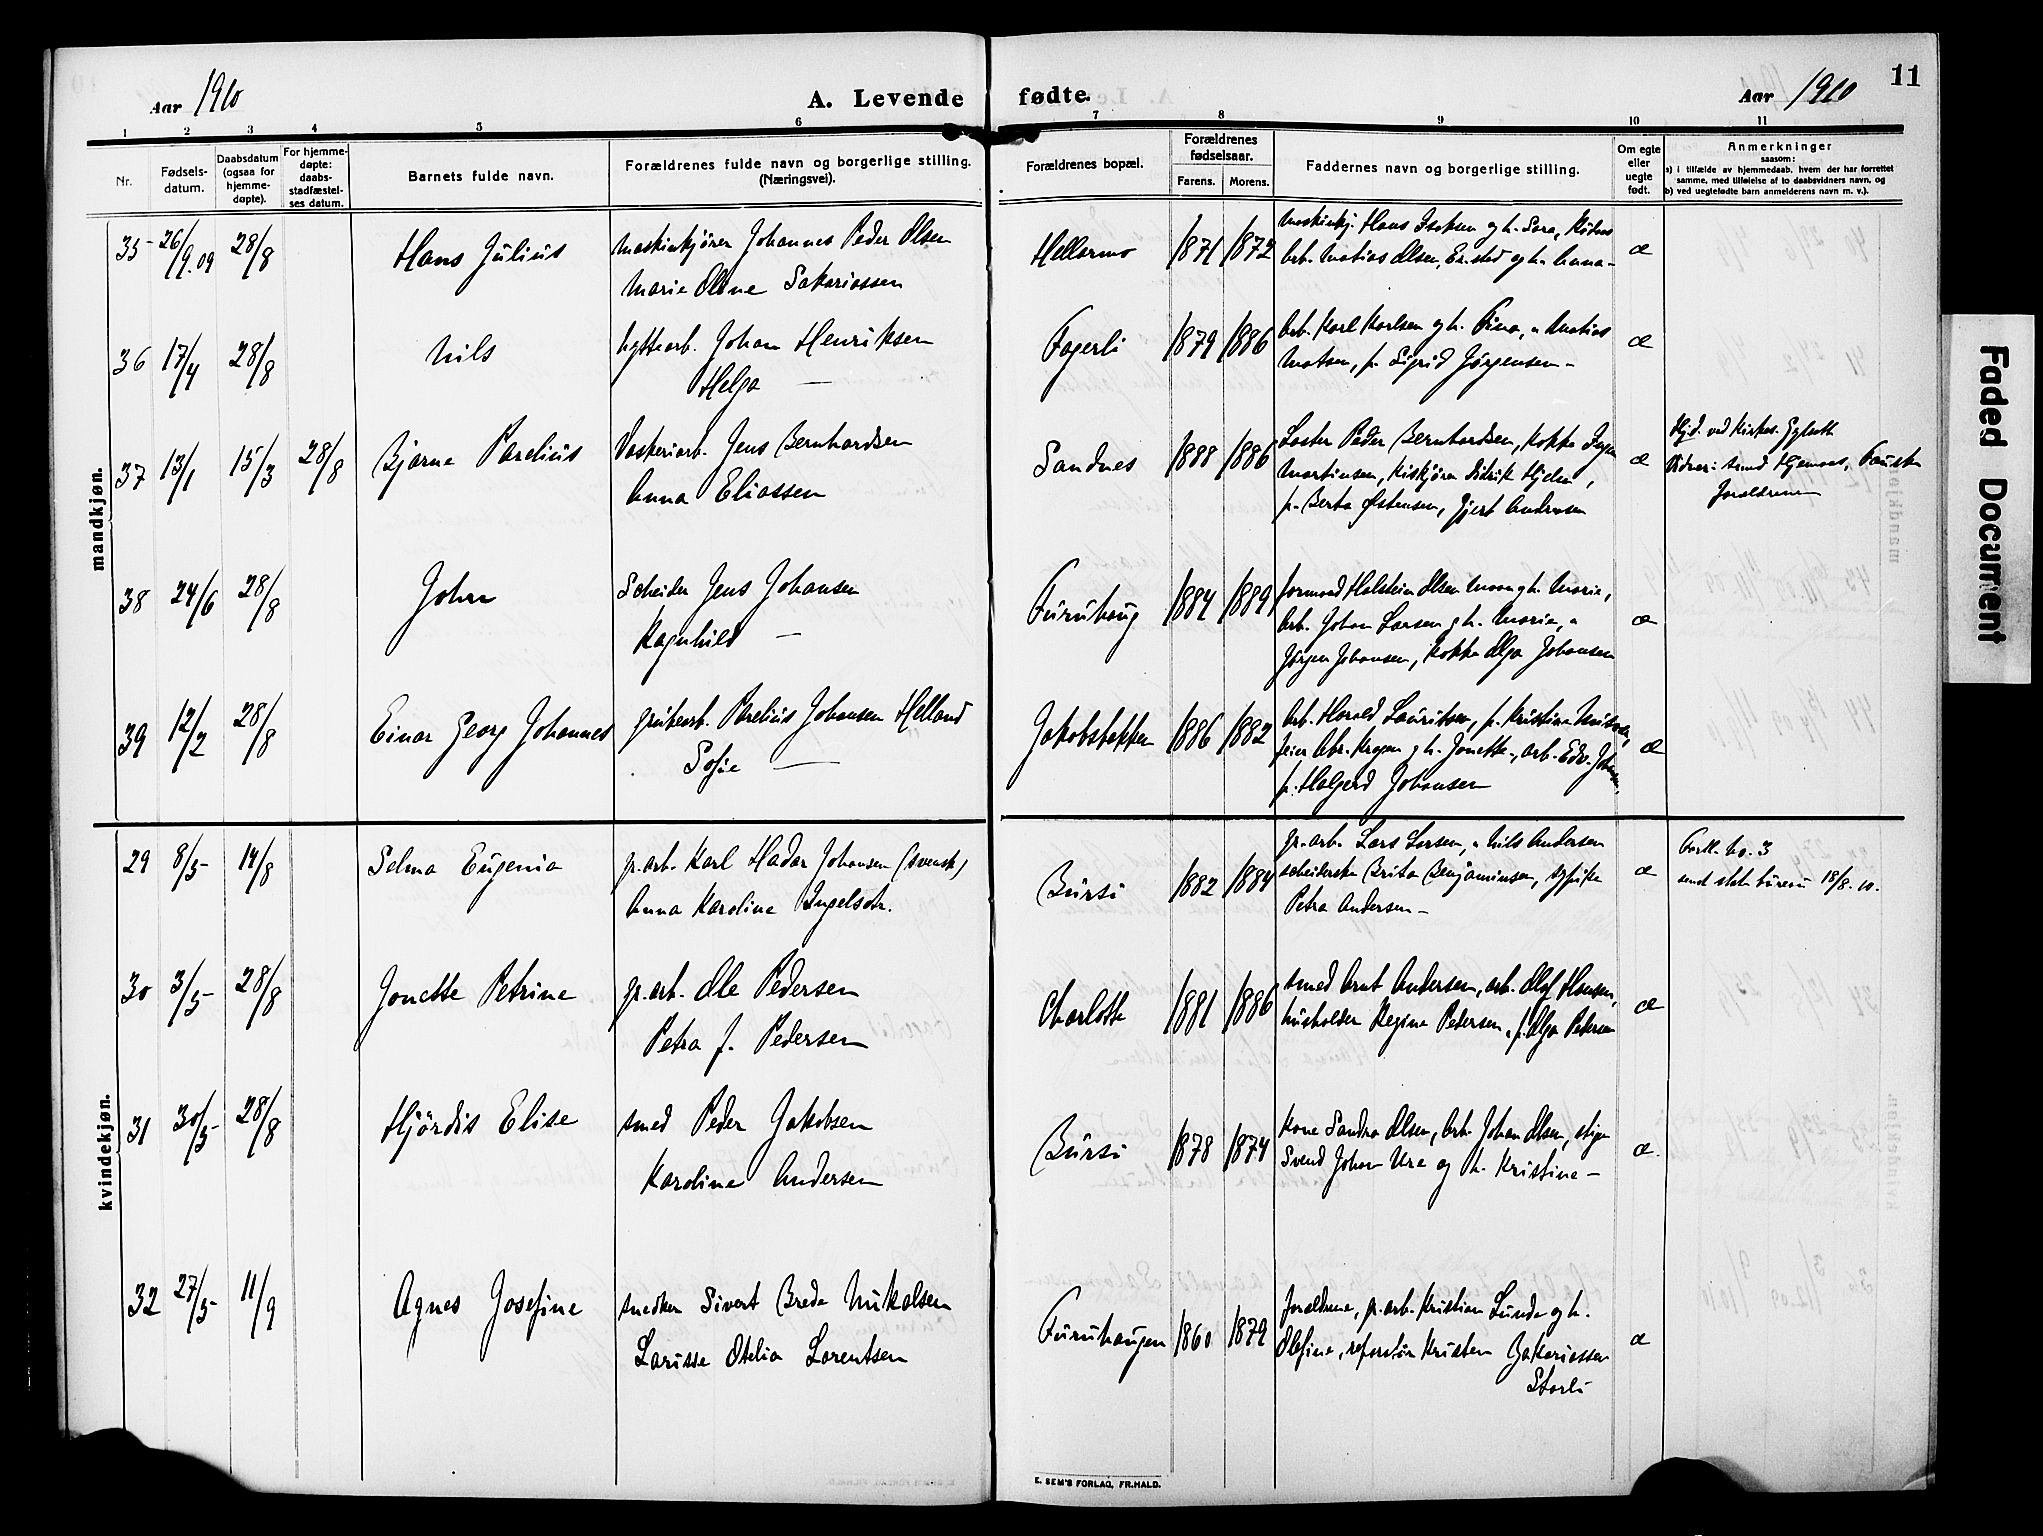 Aar 1910
A. Levende fødte.
Aar 1910
11
1 2 3 4 5 6 7 8 9 10 11
Nr.
Fødsels-
datum.
Daabsdatum
(ogsaa for
hjemme-
døpte).
For hjemme-
døpte:
daabs-
stadfæstel-
ses datum.
Barnets fulde navn.
Forældrenes fulde navn og borgerlige stilling.
(Næringsvei).
Forældrenes bopæl.
Forældrenes
fødselsaar.
Farens. Morens.
Faddernes navn og borgerlige stilling.
Om egte
eller
uegte
født.
Anmerkninger
saasom:
a) i tilfælde av hjemmedaab, hvem der har forrettet
samme, med tilføielse af to daabsvidners navn, og
b) ved uegtefødte barn anmelderens navn m. v.).
mandkjøn.
35 26/9.09 28/8 Hans Julius
maskinkjører Johannes Peder Olsen
Marie Oline Sakariassen
Hellarmo 1871 1872
maskinkj. Hans Isaksen og h. Sara,
Arb. Matias Olsen, og h. Anna -
æ
36 17/4 28/8 Nils
hyttearb. Johan Henriksen
Helga —
Fagerli 1879 1886
Arb. Karl Karlsen og h. Fina, " Matias
Matsen, p. Sigrid Jørgensen -
æ
37 13/1 15/3 28/8 Bjarne Parelius
Vaskeriarb. Jens Bernhardsen
Anna Eliassen
Sandnes 1888 1886
Laster Peder Bernhardsen, kokke
Martinsen, kiskjører Didrik
p. Berta Østensen, Gjert Andersen
æ
Hjd. ved Kirkes.
Vidner: Fauske
Forældrene
38 24/6 28/8 John
Scheider Jens Johansen
Ragnhild —
Furuhaug 1884 1889
formand Halstein Olsen og h. Marie,
Arb. Johan Larsen og h. Marie, "
Jørgen Johansen, kokke Olga Johansen
æ
39 12/2 28/8 Einar Georg Johannes
grubearb. Parelius Johansen Helland
Sofie —
Jakobsbakken 1886 1882
Arb. Harald Lauritsen, p. Kristine
og h. Jonette -, arb. Edv.
p. Halgerd Johansen
æ
kvindekjøn.
29 8/5 14/8 Selma Eugenia
gr.arb. Karl Hadar Johansen (svensk)
Anna Karoline Ingelsdtr.
Bursi 1882 1884
gr.arb. Lars Larsen, " Nils Andersen
scheiderske Brita Benjaminsen, sypike
Petra Andersen -
æ
No. 3
send stat. bureau 18/8.10.
30 3/5 28/8 Jonette Petrine
gr.arb. Ole Pedersen
Petra f. Pedersen
Charlotte 1881 1886
smed Arnt Andersen, arb. Olaf Hansen,
husholder Regine Pedersen, p. Olga Pedersen
æ
31 30/5 28/8 Hjördis Elise
smed Peder Jakobsen
Karoline Andersen
Bursi 1878 1874
kone Sandra Olsen, Arb. Johan Olsen, stiger
Svend Johan Ure og h. Kristine -
æ
32 27/5 11/9 Agnes Josefine
snedker Sivert Breda Nikolsen
Larisse Otelia Lorentsen
Furuhaugen 1860 1879
forældrene, gr.arb. Kristian Lunde og h.
Olefine, Kristen Zakariassen
Storli
æ
E. SEM'S FORLAG, FR.HALD.
Faded Document